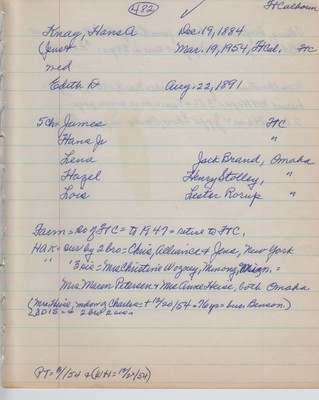 482
Ft Calhoun
Knag, Hans A Dec. 19, 1884
(Just Mar. 19, 1954, Ft Cal. FtC
med
Edith D Aug. 22, 1891
5 Ch. James FtC
Hans Jr "
Lena Jack Brand, Omaha
Hazel Henry Stolley, "
Lois Lester Rorup "
Farm = So of FtC = to 1947 = retire to FtC.
HAK = sur by 2 bro = Chris, Alliance & Jens, New York
" 3 sis = Mrs Christine Wozney, Minong, Minn. =
Mrs Maren Petersen & Mrs Anne Heise, both Omaha
(Mrs Heise, widow of Charles = + 12/20/54 = 76 yrs = bur. Benson.)
2 bro 2 sis
(PT = 4/1/54 & (WH = 12/21/54)